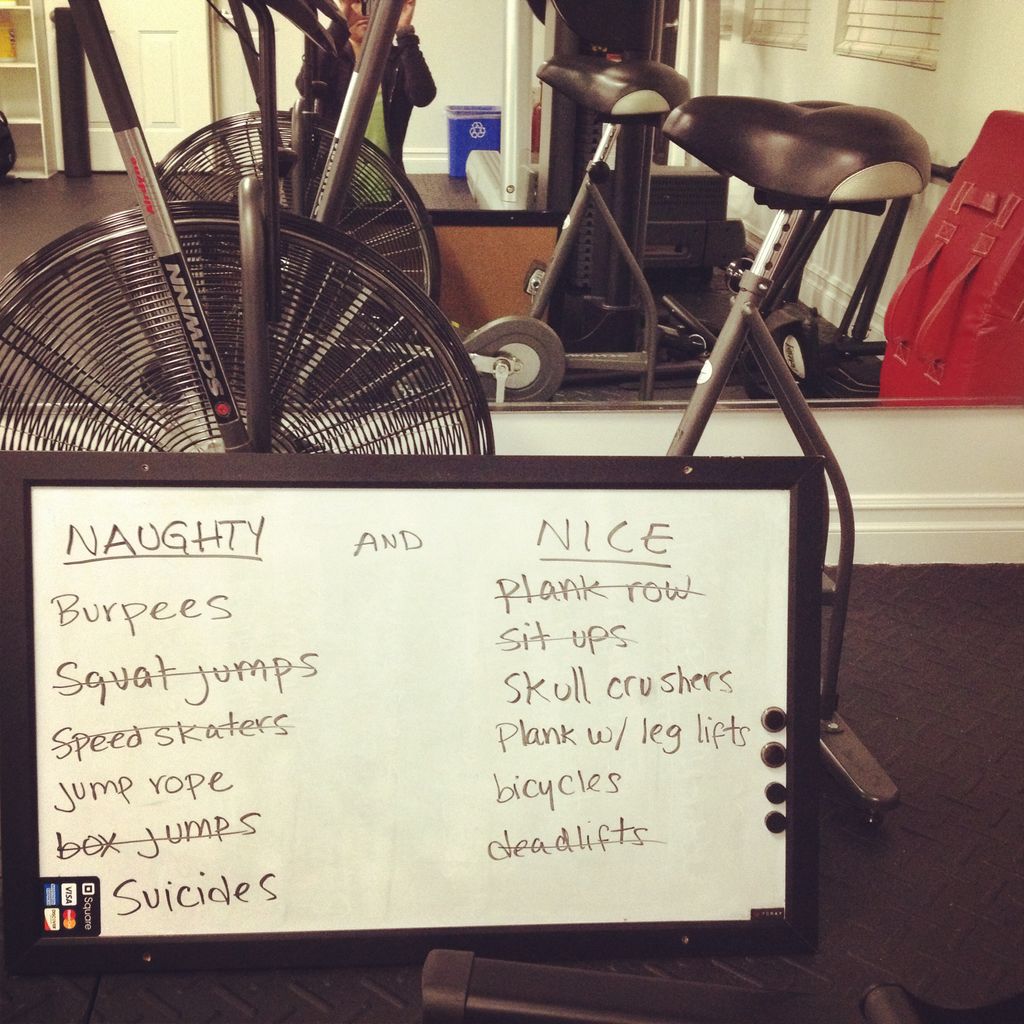 Airdyne
SCHWINN
NAUGHTY AND NICE
Burpees
Squat jumps
Speed skaters
jump rope
box jumps
Suicides
plank row
sit ups
Skull crushers
Plank w/ leg lifts
bicycles
deadlifts
Square
VISA